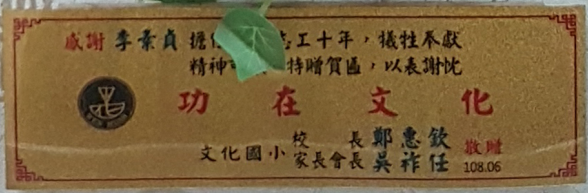 感謝 李素貞 擔 志工十年，犧牲奉獻
精神可 特贈賀匾，以表謝忱
功在文化
文化國小 校長 鄭惠欽
家長會長 吳祚任 敬贈
108.06